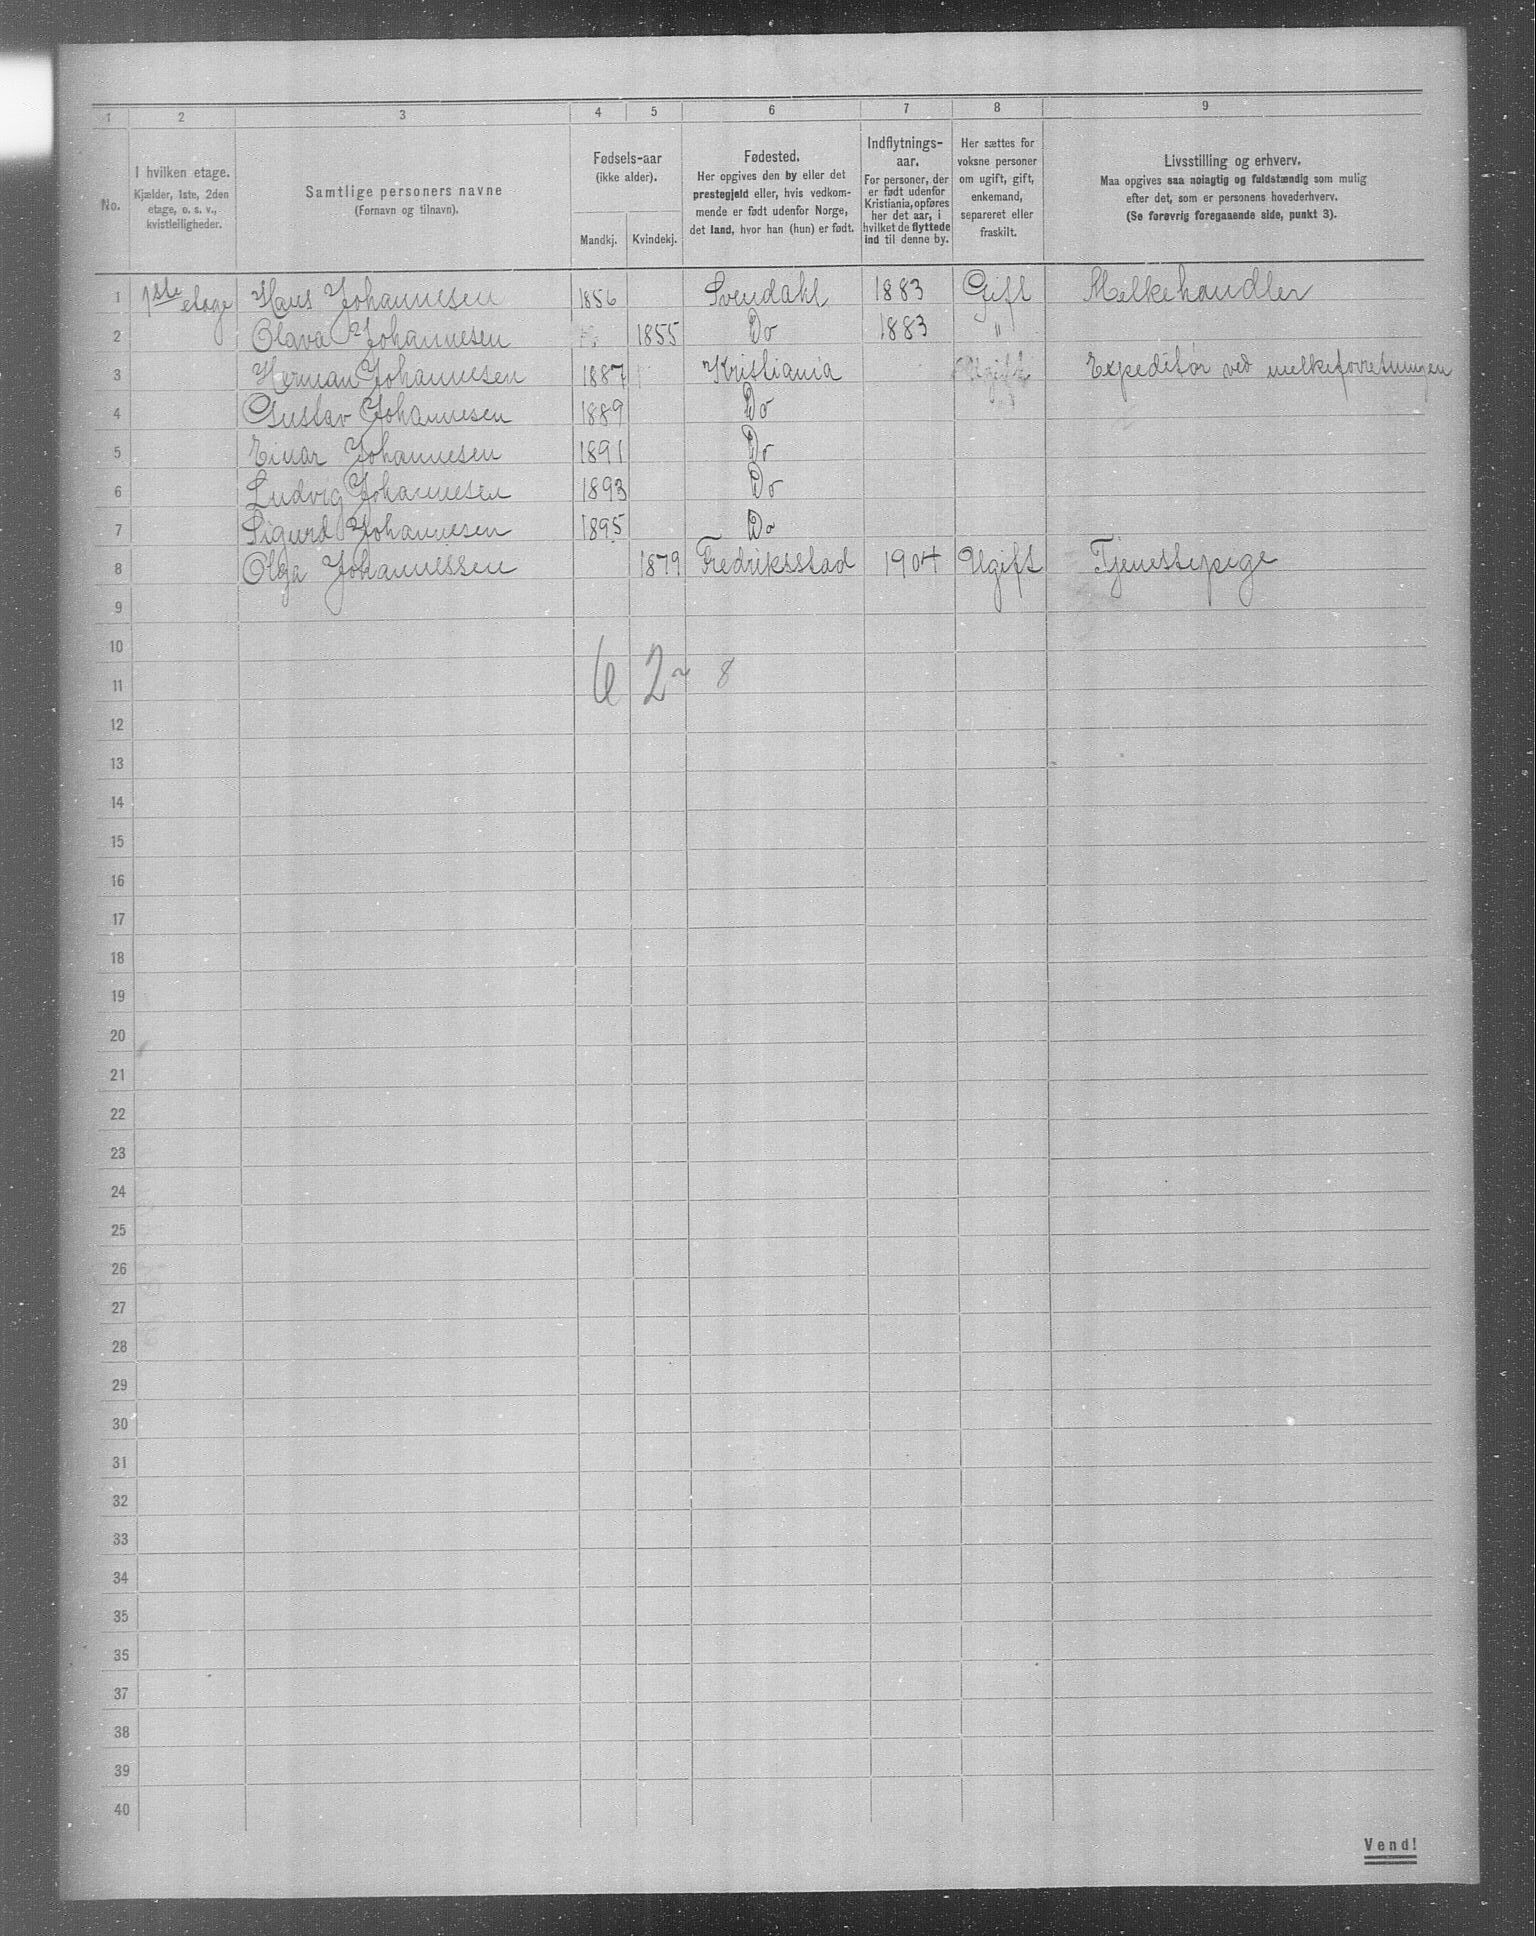 1 2 3 4 5 6 7 8 9
No.
I hvilken etage.
Kjælder, 1ste, 2den
etage, o. s. v.,
kvistleiligheder.
Samtlige personers navne
(Fornavn og tilnavn).
Fødsels-aar
(ikke alder).
Mandkj. Kvindekj.
Fødested.
Her opgives den by eller det
prestegjeld eller, hvis vedkom-
mende er født udenfor Norge,
det land, hvor han (hun) er født.
Indflytnings-
aar.
For personer, der
er født udenfor
Kristiania, opføres
her det aar, i
hvilket de flyttede
ind til denne by.
Her sættes for
voksne personer
om ugift, gift,
enkemand,
separeret eller
fraskilt.
Livsstilling og erhverv.
Maa opgives saa nøiagtig og fuldstændig som mulig
efter det, som er personens hovederhverv.
(Se forøvrig foregaaende side, punkt 3).
1 1ste etage Hans Johannesen 1856 Svendahl 1883 Gift Melkehandler
2 Olava Johannesen 1855 Do 1883 "
3 Herman Johannesen 1887 Kristiania Ugift Expeditør ved melkeforretningen
4 Gustav Johannesen 1889 Do
5 Einar Johannesen 1891 Do
6 Ludvig Johannesen 1893 Do
7 Sigurd Johannesen 1895 Do
8 Olga Johannessen 1879 Fredriksstad 1904 Ugift Tjenestepige
9
10
11 6 2 ~ 8
12
13
14
15
16
17
18
19
20
21
22
23
24
25
26
27
28
29
30
31
32
33
34
35
35
37
38
39
40
Vend!